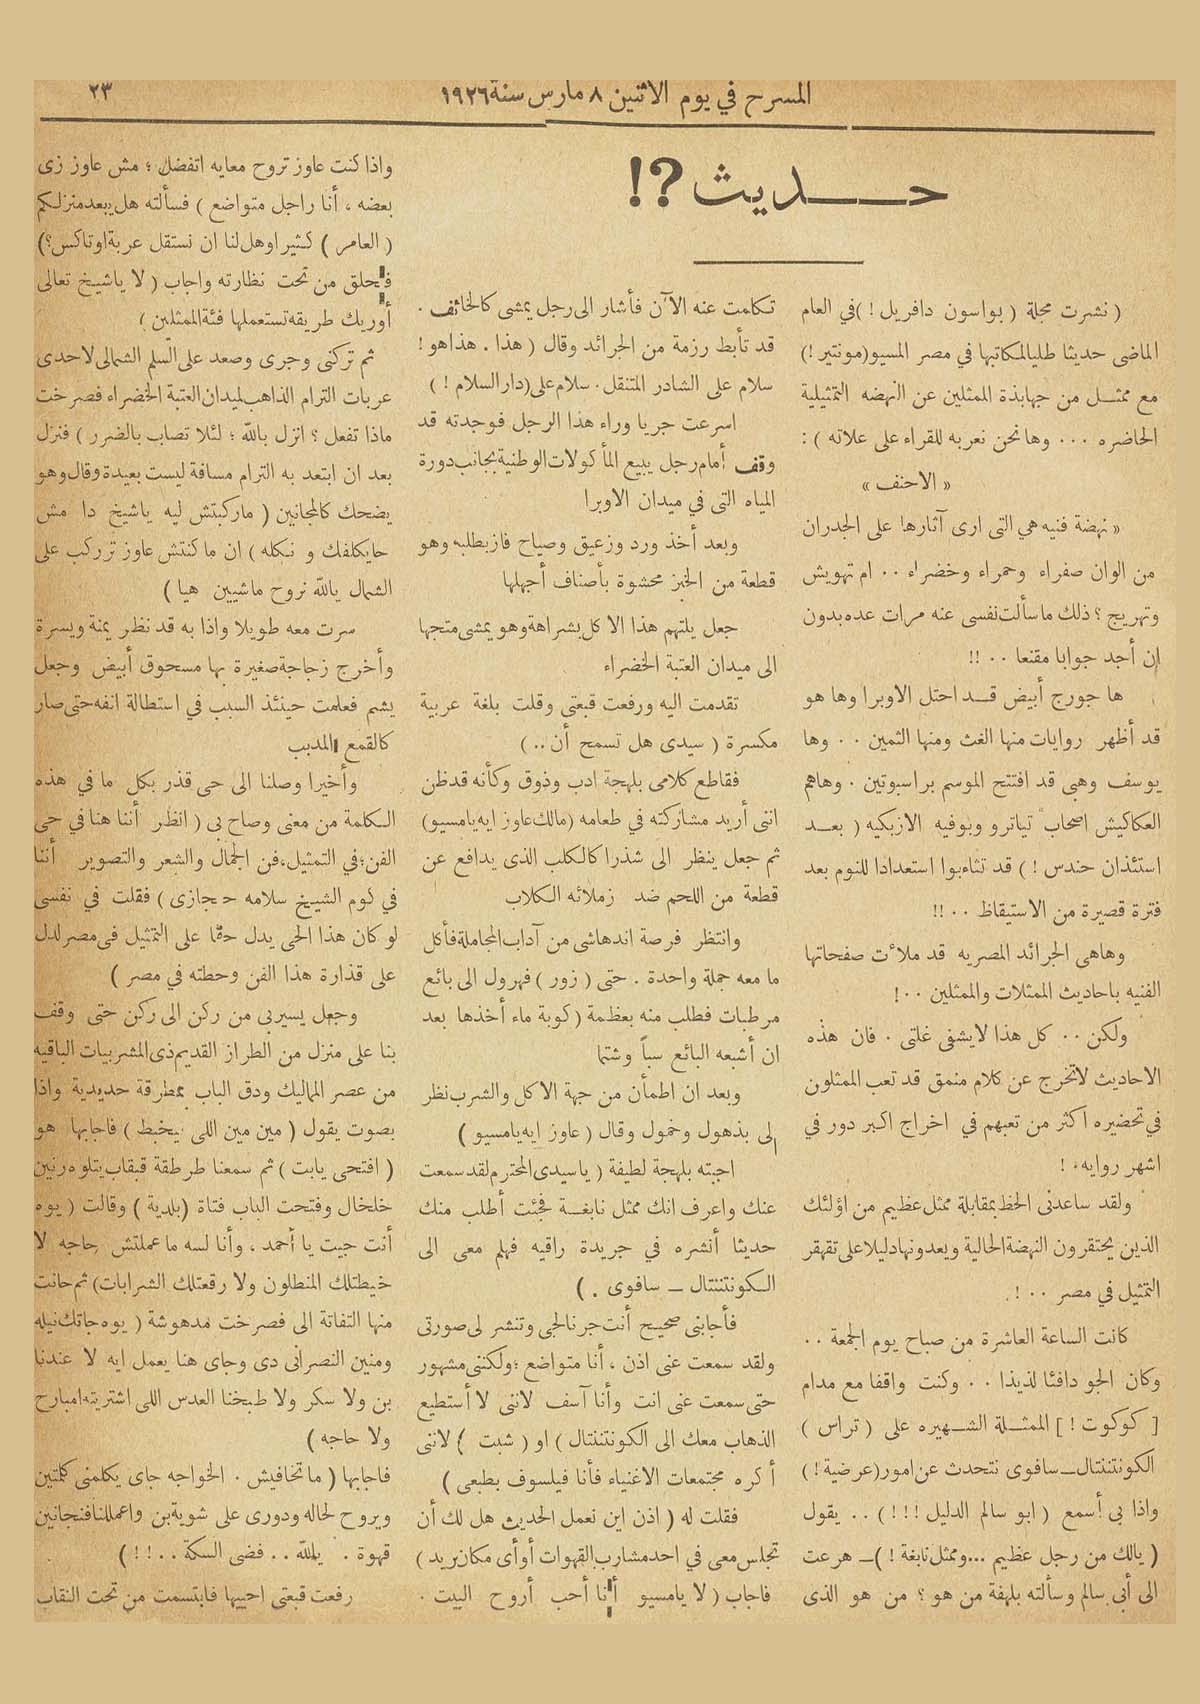 المسرح في يوم الاثنين ٨ مارس سنة ١٩٢٦
٢٣
حـــديث ?!
( نشرت مجلة ( بواسون دافريل ! ) في العام
الماضى حديثا طليا لمكاتبها في مصر المسيو ( مونتير ! )
مع ممثــل من جهابذة الممثلين عن النهضه التمثيلية
الحاضره ٠٠٠ وها نحن نعربه للقراء على علاته ) :
« الاحنف »
« نهضة فنيه هي التى ارى آثارها على الجدران
من الوان صفراء وحمراء وخضراء ٠٠ ام تهويش
وتهريج ؟ ذلك ما سألت نفسى عنه مرات عده بدون
إن أجد جوابا مقنعا ٠٠ !!
ها جورج أبيض قــد احتل الاوبرا وها هو
قد أظهر روايات منها الغث ومنها الثمين ٠٠ وها
يوسف وهبى قد افتتح الموسم براسبوتين ٠ وهاهم
العكاكيش اصحاب تياترو وبوفيه الازبكيه ( بعــد
استئذان حندس ! ) قد تثاءبوا استعدادا للنوم بعد
فترة قصيرة من الاستيقاظ ٠٠ !!
وهاهى الجرائد المصريه قد ملأت صفحاتها
الفنيه باحاديث الممثلات والممثلين ٠٠ !
ولكن ٠٠ كل هذا لايشفى غلتى ٠ فان هذه
الاحاديث لاتخرج عن كلام منمق قد تعب الممثلون
في تحضيره اكثر من تعبهم في اخراج اكبر دور في
اشهر روايه ٠ !
ولقد ساعدنى الحظ بمقابلة ممثل عظيم من اؤلئك
الذين يحتقرون النهضة الحالية ويعدونها دليلا على تقهقر
التمثيل في مصر ٠٠ ! ٠
كانت الساعة العاشرة من صباح يوم الجمعة ٠٠
وكان الجو دافئا لذيذا ٠٠ وكنت واقفا مع مدام
[ كوكوت ! ] الممثــلة الشــهيره على ( تراس )
الكونتننتال ــ سافوى نتحدث عن امور ( عرضية ! )
واذا بى أسمع ( ابو سالم الدليل !!! ) ٠٠ يقول
( يالك من رجل عظيم ... وممثل نابغة ! ) ــ هرعت
الى أبى سالم وسألته بلهفة من هو ؟ من هو الذى
تكلمت عنه الآن فأشار الى رجل يمشى كالخائف ٠
قد تأبط رزمة من الجرائد وقال ( هذا . هذا هو !
سلام على الشادر المتنقل . سلام على ( دار السلام ! )
اسرعت جريا وراء هذا الرجل فوجدته قد
وقف أمام رجل يبيع المأكولات الوطنية بجانب دورة
المياه التى في ميدان الاوبرا
وبعد أخذ ورد وزعيق وصياح فاز بطلبه وهو
قطعة من الخبز محشوة بأصناف أجهلها
جعل يلتهم هذا الاكل بشراهة وهو يمشى متجها
الى ميدان العتبة الخضراء
تقدمت اليه ورفعت قبعتى وقلت بلغة عربية
مكسرة ( سيدى هل تسمح أن .. )
فقاطع كلامى بلهجة ادب وذوق وكأنه قد ظن
اننى أريد مشاركته في طعامه ( مالك عاوز ايه يامسيو )
ثم جعل ينظر الى شذرا كالكلب الذى يدافع عن
قطعة من اللحم ضد زملائه الكلاب
وانتظر فرصة اندهاشى من آداب المجاملة فأكل
ما معه حملة واحدة . حتى ( زور ) فهرول الى بائع
مرطبات فطلب منه بعظمة ( كوبة ماء أخذها بعد
ان أشبعه البائع سباً وشتما
وبعد ان اطمأن من جهة الاكل والشرب نظر
إلى بذهول وخمول وقال ( عاوز ايه يامسيو )
اجبته بلهجة لطيفة ( ياسيدى المحترم لقد سمعت
عنك واعرف انك ممثل نابغــة فجئت أطلب منك
حديثا أنشره في جريدة راقيه فهلم معى الى
الكونتننتال ــ سافوى . )
فأجابنى صحيح أنت جرنالجى وتنشر لى صورتى
ولقد سمعت عنى اذن ، أنا متواضع ؛ ولكننى مشهور
حتى سمعت عنى انت وأنا آسف لاننى لا أستطيع
الذهاب معك الى الكونتننتال ) او ( شبت ) لاننى
أكره مجتمعات الاغنياء فأنا فيلسوف بطبعى )
فقلت له ( اذن اين نعمل الحديث هل لك أن
تجلس معى في احد مشارب القهوات أو أى مكان تريد )
فاجاب ( لا يامسيو أنا أحب أروح البيت ٠
واذا كنت عاوز تروح معايه اتفضل ؛ مش عاوز زى
بعضه ، أنا راجل متواضع ) فسألته هل يبعد منزلكم
( العامر ) كثيرا وهل لنا ان نستقل عربة او تاكس ؟ )
فحلق من تحت نظارته واجاب ( لا ياشيخ تعالى
أوريك طريقه تستعملها فئة الممثلين )
ثم تركنى وجرى وصعد على السلم الشمالى لاحدى
عربات الترام الذاهب لميدان العتبة الخضراء فصرخت
ماذا تفعل ؟ انزل بالله ؛ لئلا تصاب بالضرر ) فنزل
بعد ان ابتعد به الترام مسافة ليست بعيدة وقال وهو
يضحك كالمجانين ( ماركبتش ليه ياشيخ دا مش
حايكلفك و نكله ) ان ما كنتش عاوز تركب على
الشمال يالله نروح ماشيين هيا )
سرت معه طويلا واذا به قد نظر يمنة ويسرة
وأخرج زجاجة صغيرة بها مسحوق أبيض وجعل
يشم فعلمت حينئذ السبب في استطالة انفه حتى صار
كالقمع المدبب
وأخيرا وصلنا الى حى قذر بكل ما في هذه
الكلمة من معنى وصاح بى ( انظر أننا هنا في حى
الفن ؛ في التمثيل ، فن الجمال والشعر والتصوير أننا
في كوم الشيخ سلامه حجازى ) فقلت في نفسى
لو كان هذا الحى يدل حقا على التمثيل فى مصر لدل
على قذارة هذا الفن وحطته في مصر )
وجعل يسير بى من ركن الى ركن حتى وقف
بنا على منزل من الطراز القديم ذى المشربيات الباقيه
من عصر المماليك ودق الباب بمطرقة حديدية واذا
بصوت يقول ( مين مين اللى بيخبط ) فاجابها هو
( افتحى يابت ) ثم سمعنا طرطقة قبقاب يتلوه رنين
خلخال وفتحت الباب فتاة ( بلدية ) وقالت ( يوه
أنت جيت يا أحمد ، وأنا لسه ما عملتش حاجه لا
خيطتلك المنطلون ولا رقعتلك الشرابات ) ثم حانت
منها التفاتة الى فصرخت مدهوشة ( يوه جاتك نيله
ومنين النصرانى دى وجاى هنا يعمل ايه لا عندنا
بن ولا سكر ولا طبخنا العدس اللى اشتريته امبارح
ولا حاجه )
فاجابها ( ماتخافيش . الخواجه جاى يكلمنى كلمتين
ويروح لحاله ودورى على شوية بن واعملنا فنجانين
قهوة . يالله .. فضى السكة .. !! )
رفعت قبعتى احييها فابتسمت من تحت النقاب